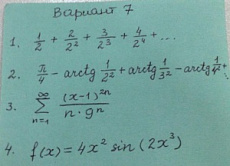 Вариант 7
1. 1/2 + 2/2² + 3/2³ + 4/2⁴ + ...
2. π/4 - arctg 1/2² + arctg 1/3² - arctg 1/4² + ...
3. ∞ ∑ n=1 (x-1)²ⁿ / n · 9ⁿ
4. f(x) = 4x² sin (2x³)